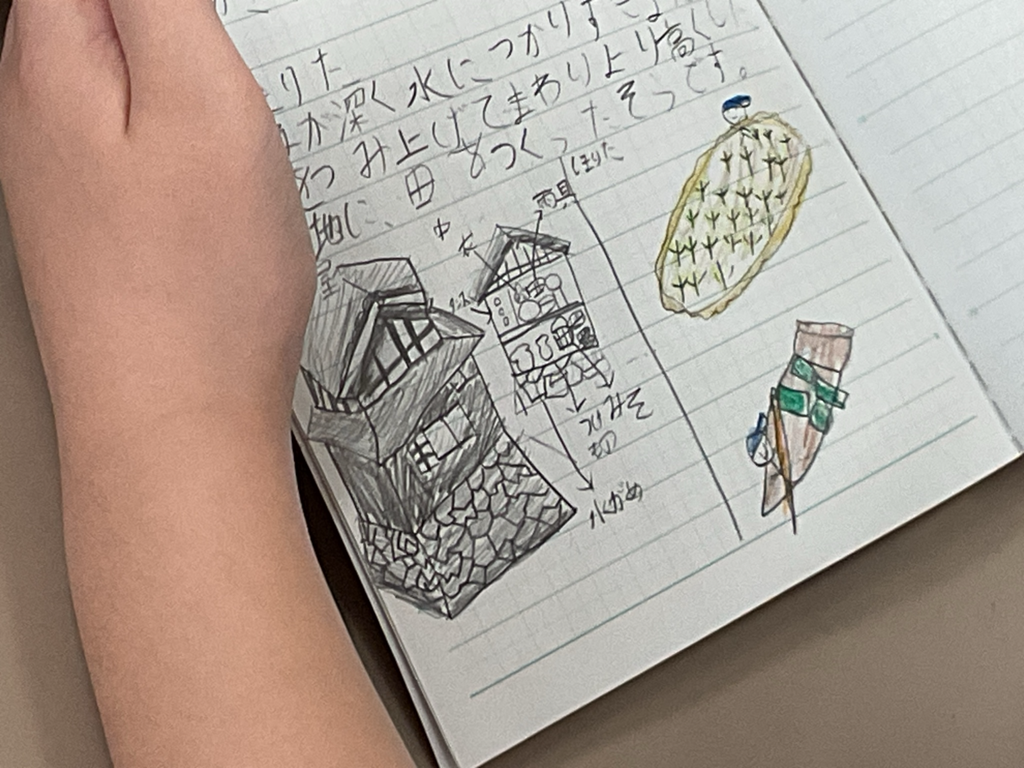 りた
が深く水につかりすぎ
つみ上げてまわりより高くし
地に、田をつくったそうです。
ほりた
雨具
中
米
みそ
つけ
物
水がめ